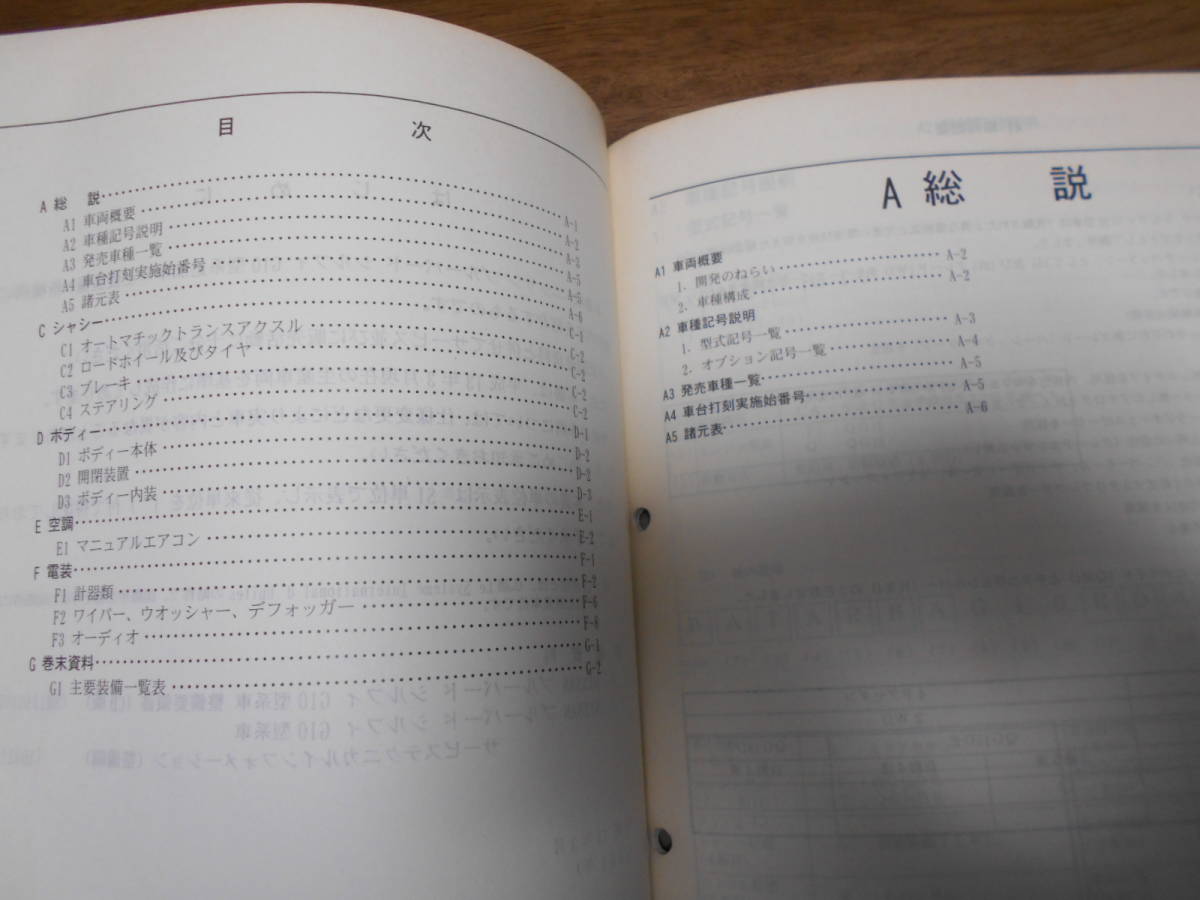 目 次
A 総 説 A-1
A1 車両概要 A-2
A2 車種記号説明 A-3
A3 発売車種一覧 A-5
A4 車台打刻実施始番号 A-5
A5 諸元表 A-6
C シャシー C-1
C1 オートマチックトランスアクスル C-2
C2 ロードホイール及びタイヤ C-2
C3 ブレーキ C-2
C4 ステアリング C-2
D ボディー D-1
D1 ボディー本体 D-2
D2 開閉装置 D-2
D3 ボディー内装 D-3
E 空調 E-1
E1 マニュアルエアコン E-2
F 電装 F-1
F1 計器類 F-2
F2 ワイパー、ウオッシャー、デフォッガー F-6
F3 オーディオ F-8
G 巻末資料 G-1
G1 主要装備一覧表 G-2
A 総 説
A1 車両概要
1. 開発のねらい A-2
2. 車種構成 A-2
A2 車種記号説明
1. 型式記号一覧 A-3
2. オプション記号一覧 A-4
A3 発売車種一覧 A-5
A4 車台打刻実施始番号 A-5
A5 諸元表 A-6